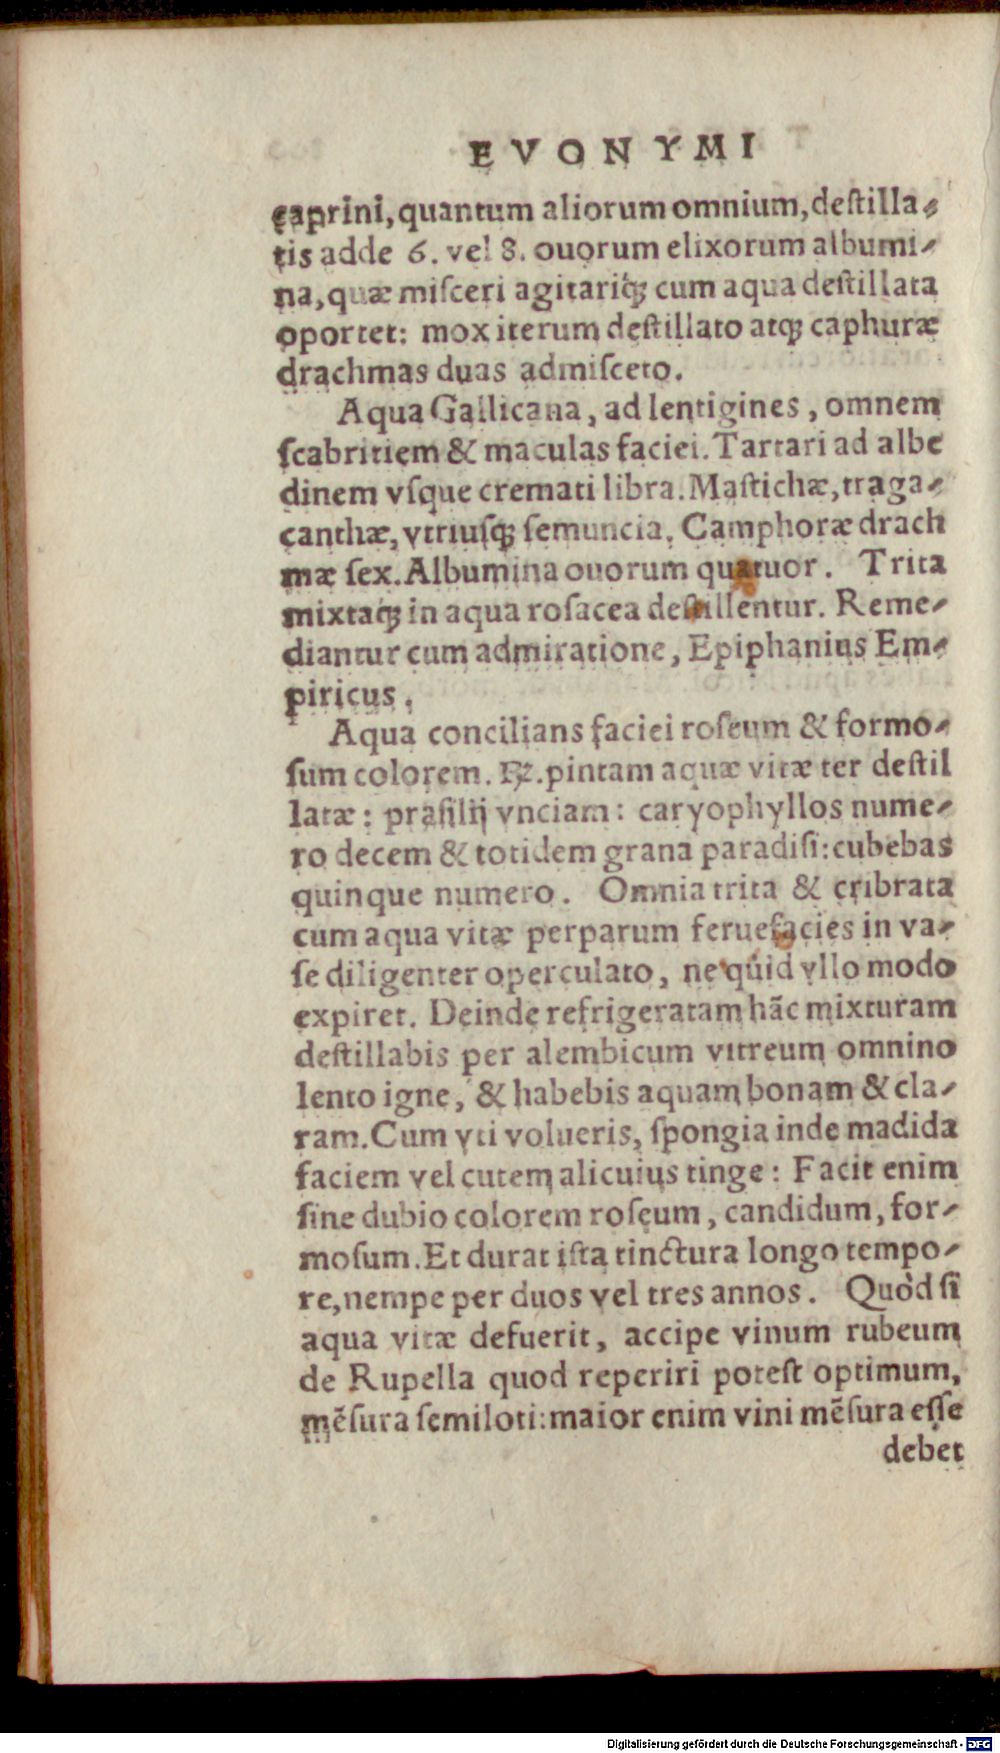 EVONYMI
caprini, quantum aliorum omnium, deſtilla-
tis adde 6. vel 8. ouorum elixorum albumi-
na, quæ miſceri agitariq́ꝫ cum aqua deſtillata
oportet: mox iterum deſtillato atqꝫ caphuræ
drachmas duas admiſceto.
Aqua Gallicana, ad lentigines, omnem
ſcabritiem & maculas faciei. Tartari ad albe
dinem vſque cremati libra. Maſtichæ, traga-
canthæ, vtriuſqꝫ ſemuncia. Camphoræ drach
mæ ſex. Albumina ouorum quatuor. Trita
mixtaqꝫ in aqua roſacea deſtillentur. Reme-
diantur cum admiratione, Epiphanius Em-
piricus.
Aqua concilians faciei roſeum & formo-
ſum colorem. ℞. pintam aquæ vitæ ter deſtil
latæ: praſilij vnciam: caryophyllos nume-
ro decem & totidem grana paradiſi: cubebas
quinque numero. Omnia trita & cribrata
cum aqua vitæ perparum feruefacies in va-
ſe diligenter operculato, ne quid vllo modo
expiret. Deinde refrigeratam hãc mixturam
deſtillabis per alembicum vitreum omnino
lento igne, & habebis aquam bonam & cla-
ram. Cum vti volueris, ſpongia inde madida
faciem vel cutem alicuius tinge: Facit enim
ſine dubio colorem roſeum, candidum, for-
moſum. Et durat iſta tinctura longo tempo-
re, nempe per duos vel tres annos. Quòd ſi
aqua vitæ defuerit, accipe vinum rubeum
de Rupella quod reperiri poteſt optimum,
mẽſura ſemiloti: maior enim vini mẽſura eſſe
debet
Digitalisierung gefördert durch die Deutsche Forschungsgemeinschaft - DFG